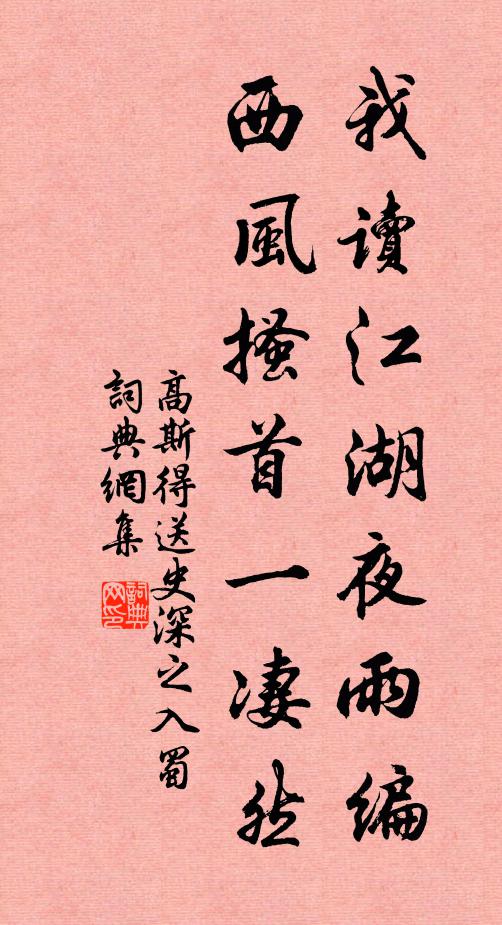 我讀江湖夜雨編
西風搔首一凄然
高斯得送史深之入蜀
詞典網集
詞典網印